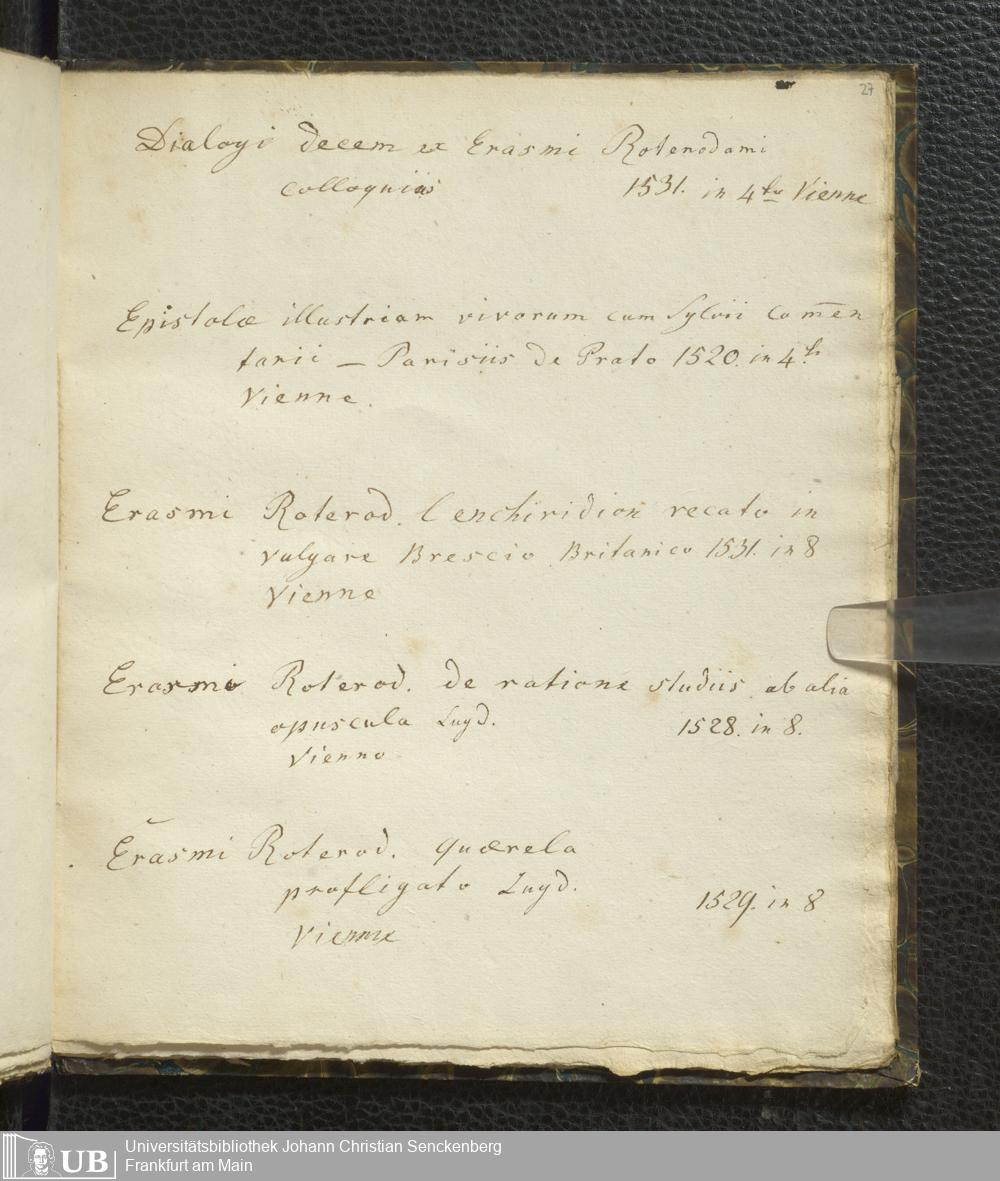 27
Dialogi decem ex Erasmi Roterodami
colloquiis 1531. in 4to Vienne
Epistolæ illustriam virorum cum Sylvii Com̅en
tarii — Parisiis de Prato 1520. in 4to
Vienne.
Erasmi Roterod. l'enchiridion recato in
vulgare Brescio Britanico 1531. in 8
Vienne
Erasmi Roterod. de ratione studiis ab alia
opuscula Lugd. 1528. in 8.
Vienne
Erasmi Roterod. quærela
profligato Lugd. 1529. in 8
Vienne
UB
Universitätsbibliothek Johann Christian Senckenberg
Frankfurt am Main